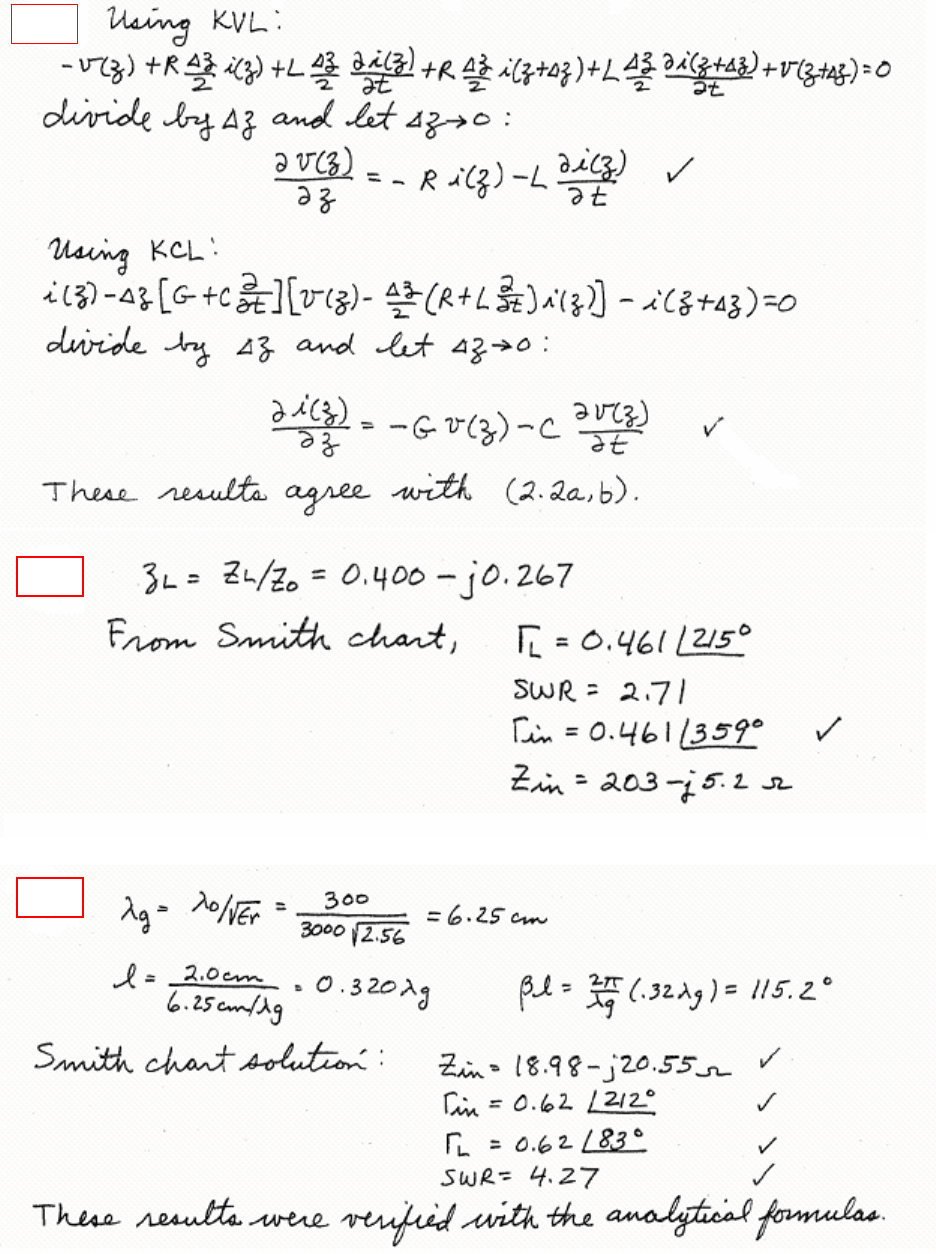 Using KVL:
-v(z) + R Δz/2 i(z) + L Δz/2 ∂i(z)/∂t + R Δz/2 i(z+Δz) + L Δz/2 ∂i(z+Δz)/∂t + v(z+Δz) = 0
divide by Δz and let Δz→0:
∂v(z)/∂z = - R i(z) - L ∂i(z)/∂t ✓
Using KCL:
i(z) - Δz [G + C ∂/∂t][v(z) - Δz/2 (R + L ∂/∂t) i(z)] - i(z+Δz) = 0
divide by Δz and let Δz→0:
∂i(z)/∂z = -G v(z) - C ∂v(z)/∂t ✓
These results agree with (2.2a,b).
zL = ZL/Z0 = 0.400 - j0.267
From Smith chart, ΓL = 0.461 ∠215°
SWR = 2.71
Γin = 0.461 ∠359° ✓
Zin = 203 - j5.2 Ω
λg = λ0/√Er = 300/(3000 √2.56) = 6.25 cm
l = 2.0cm/(6.25cm/λg) = 0.320 λg βl = 2π/λg (.32λg) = 115.2°
Smith chart solution: Zin = 18.98 - j20.55 Ω ✓
Γin = 0.62 ∠212° ✓
ΓL = 0.62 ∠83° ✓
SWR = 4.27 ✓
These results were verified with the analytical formulas.